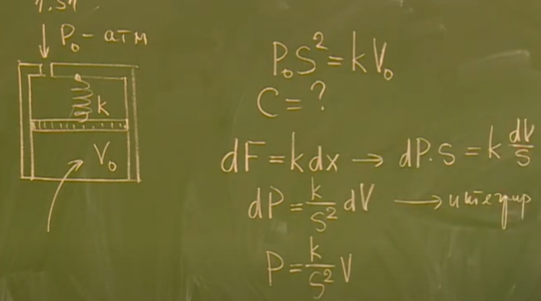 1.51
P₀ - атм
k
V₀
P₀S² = kV₀
C = ?
dF = kdx → dP·S = k dV/S
dP = k/S² dV → интегрир
P = k/S² V